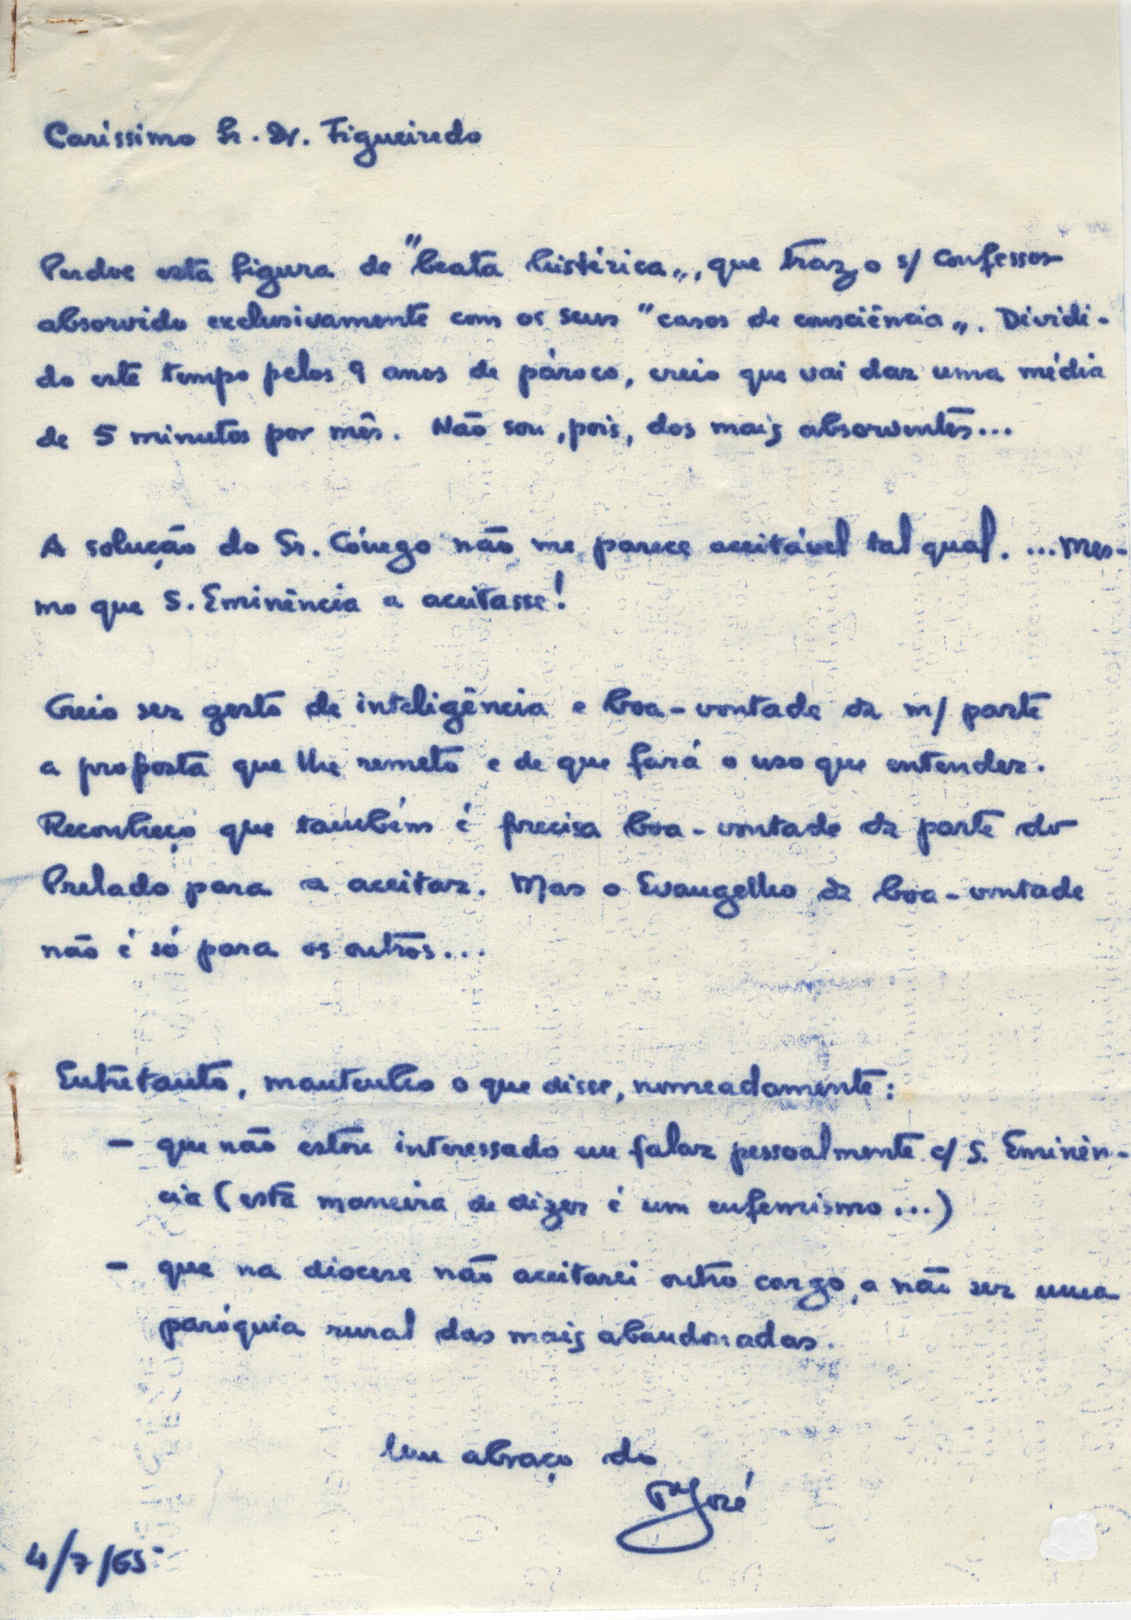 Caríssimo Sr. Dr. Figueiredo
Perdoe esta figura de "beata histérica„, que traz o s/ confessor
absorvido exclusivamente com os seus "casos de consciência„. Dividi-
do este tempo pelos 9 anos de pároco, creio que vai dar uma média
de 5 minutos por mês. Não sou, pois, dos mais absorventes...
A solução do Sr. Cónego não me parece aceitável tal qual. ... Mes-
mo que S. Eminência a aceitasse!
Creio ser gesto de inteligência e boa-vontade da m/ parte
a proposta que lhe remeto e de que fará o uso que entender.
Reconheço que também é precisa boa-vontade da parte do
Prelado para a aceitar. Mas o Evangelho da boa-vontade
não é só para os outros...
Entretanto, mantenho o que disse, nomeadamente:
- que não estou interessado em falar pessoalmente c/ S. Eminên-
cia (esta maneira de dizer é um eufemismo...)
- que na diocese não aceitarei outro cargo, a não ser uma
paróquia rural das mais abandonadas.
Um abraço do
Pe José
4/7/65